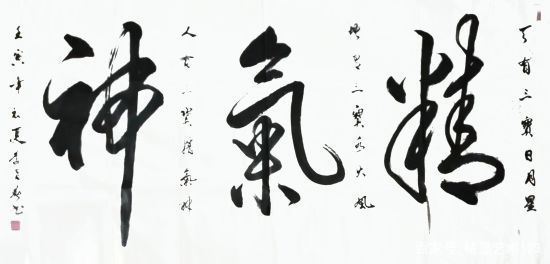 天有三寶日月星
精
地有三寶水火風
氣
人有三寶精氣神
神
壬寅年之夏李